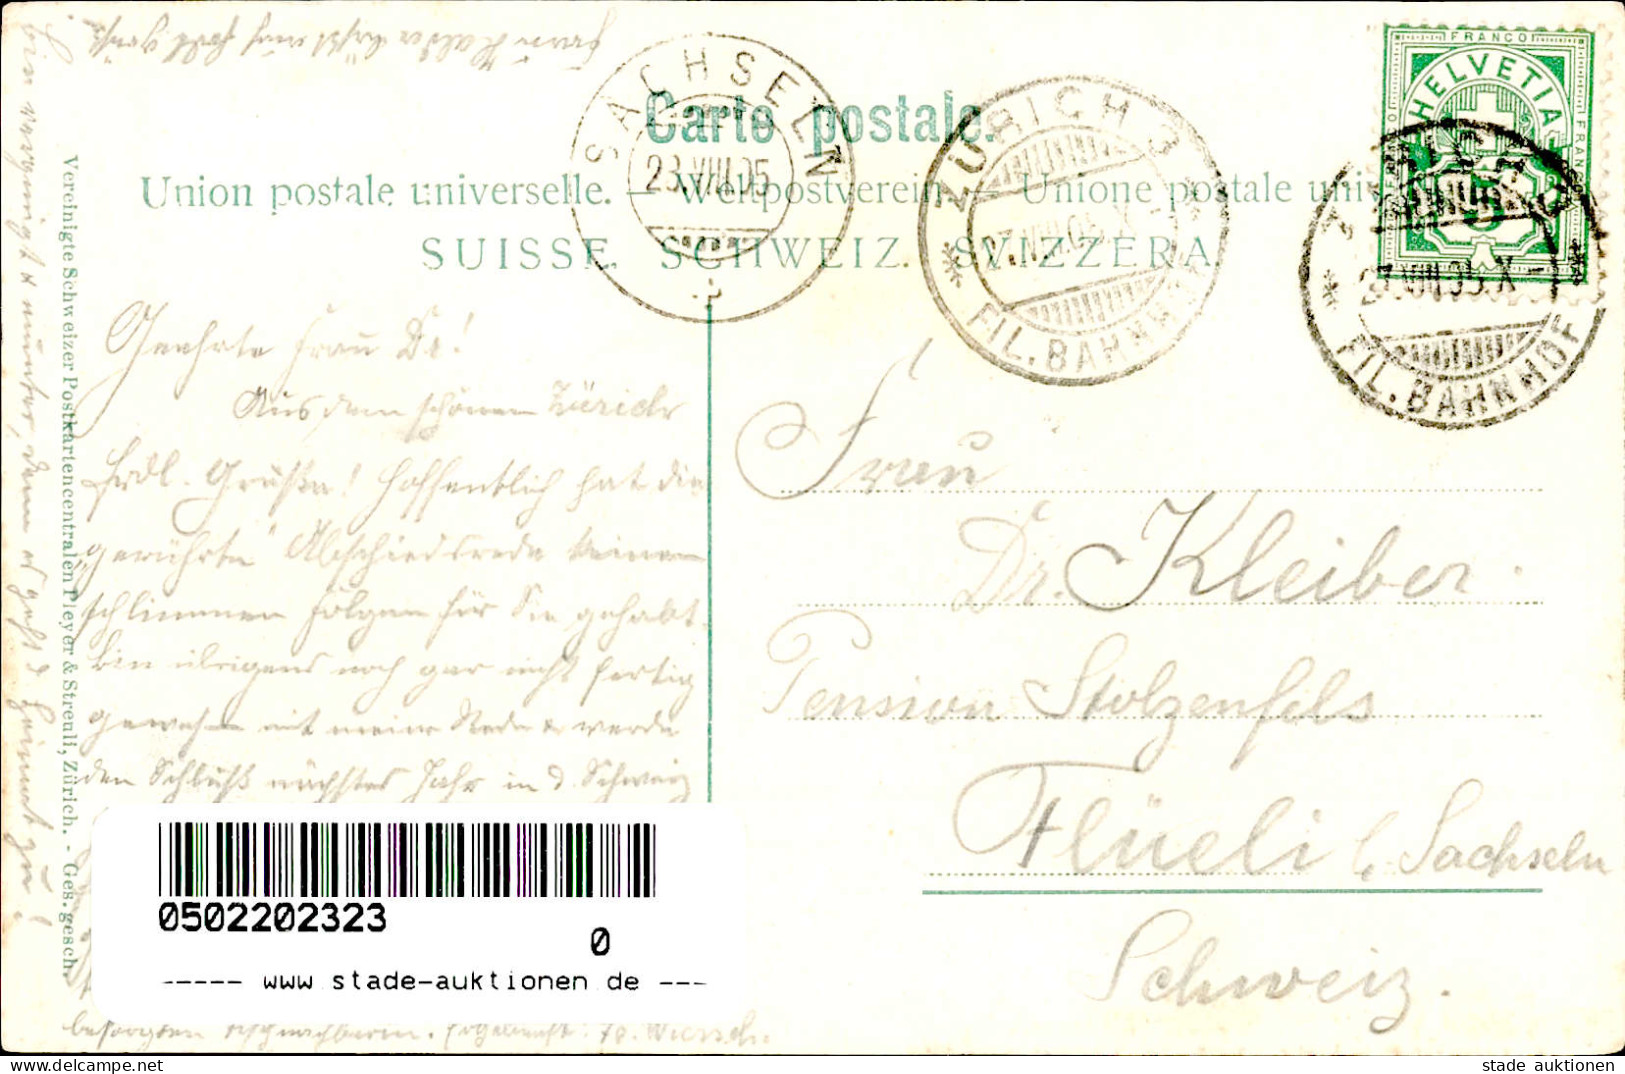 Carte postale.
Union postale universelle. — Weltpostverein — Unione postale univ
SUISSE. SCHWEIZ. SVIZZERA.
SACHSELN
23.VIII.05
ZÜRICH 3
23.VIII.05.X-
FIL. BAHNHOF
FRANCO
HELVETIA
23.VIII.05.X-
FIL. BAHNHOF
Vereinigte Schweizer Postkartencentralen Pleyer & Streuli, Zürich. - Ges. gesch.
Geehrte Frau Dr!
Aus dem schönen Zürich
frdl. Grüße! Hoffentlich hat die
"gerührte" Abschiedsrede keinen
schlimmen Folgen für Sie gehabt
bin übrigens noch gar nicht fertig
gewesen mit meiner Rede & werde
den Schluß nächstes Jahr in d. Schweiz
bin vergnügt & munter, denn es geht d. Heimat zu!
Frau
Dr. Kleiber.
Pension Stolzenfels
Flüeli b. Sachseln
Schweiz.
0502202323
0
----- www.stade-auktionen.de ---
stade auktionen